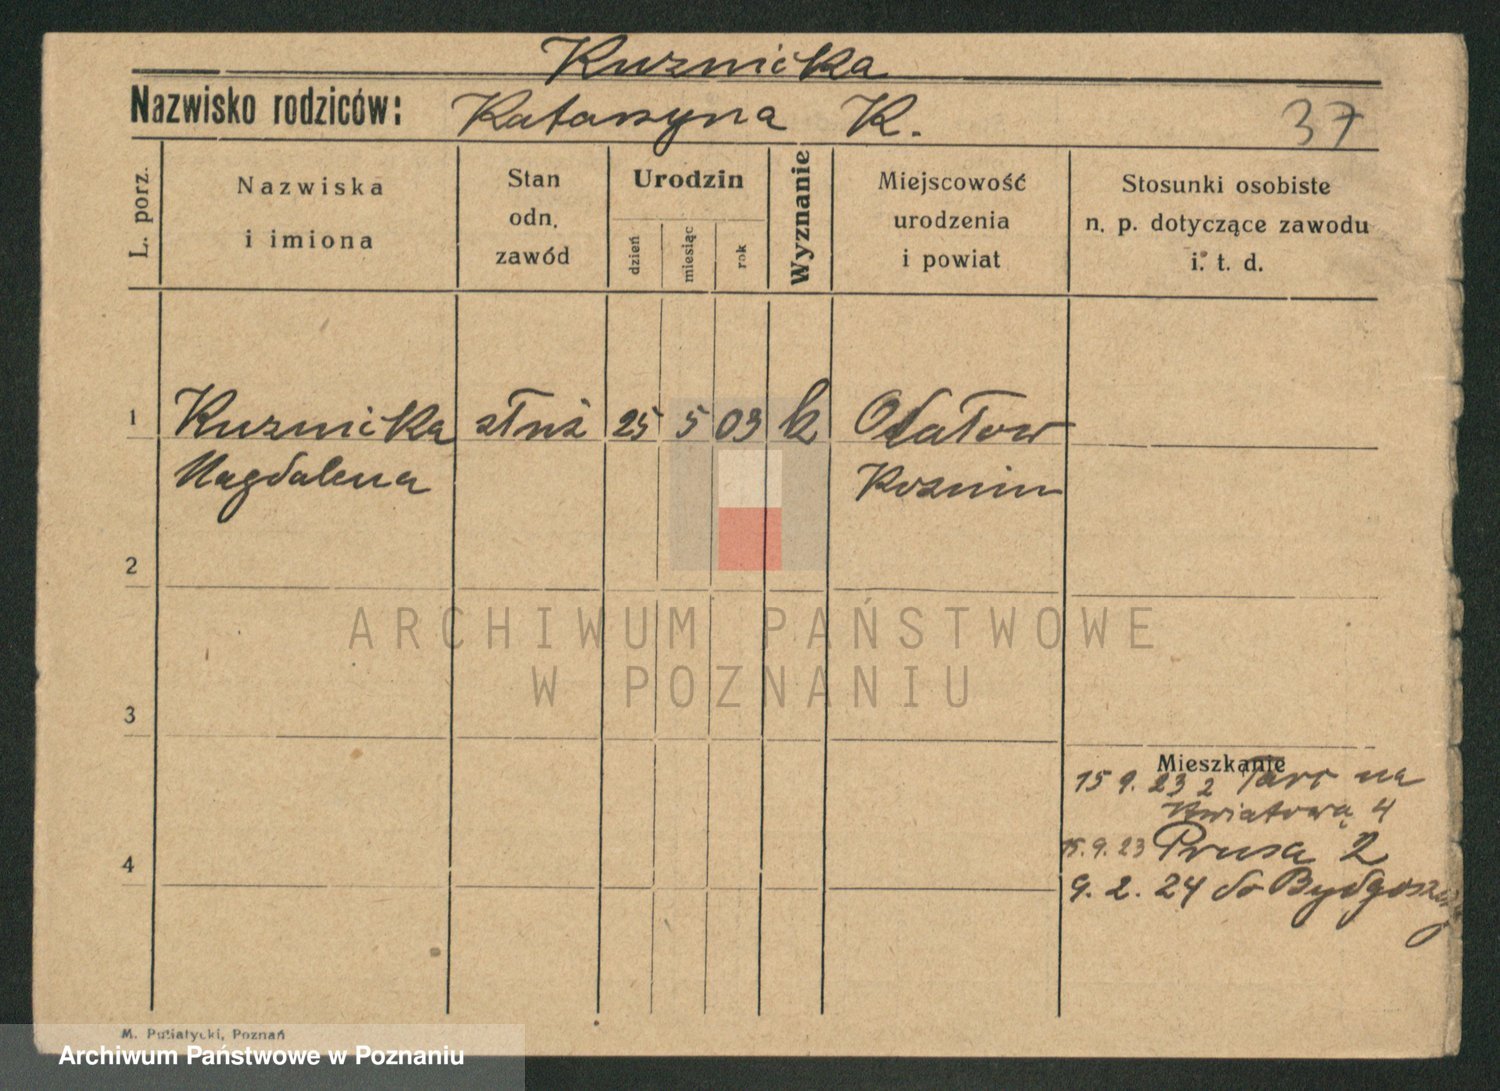 Kuznicka
Nazwisko rodziców: Katarzyna K. 37
L. porz.
Nazwiska
i imiona
Stan
odn.
zawód
Urodzin
dzień
miesiąc
rok
Wyznanie
Miejscowość
urodzenia
i powiat
Stosunki osobiste
n. p. dotyczące zawodu
i. t. d.
1 Kuznicka służ 25 5 03 k
Magdalena Kozmin
2
3
4
Mieszkanie
15 9. 23 z na
Kwiatową 4
15.9.23 Prusa 2
9. 2. 24 do Bydgoszczy
M. Putiatycki, Poznań
ARCHIWUM PAŃSTWOWE
W POZNANIU
Archiwum Państwowe w Poznaniu